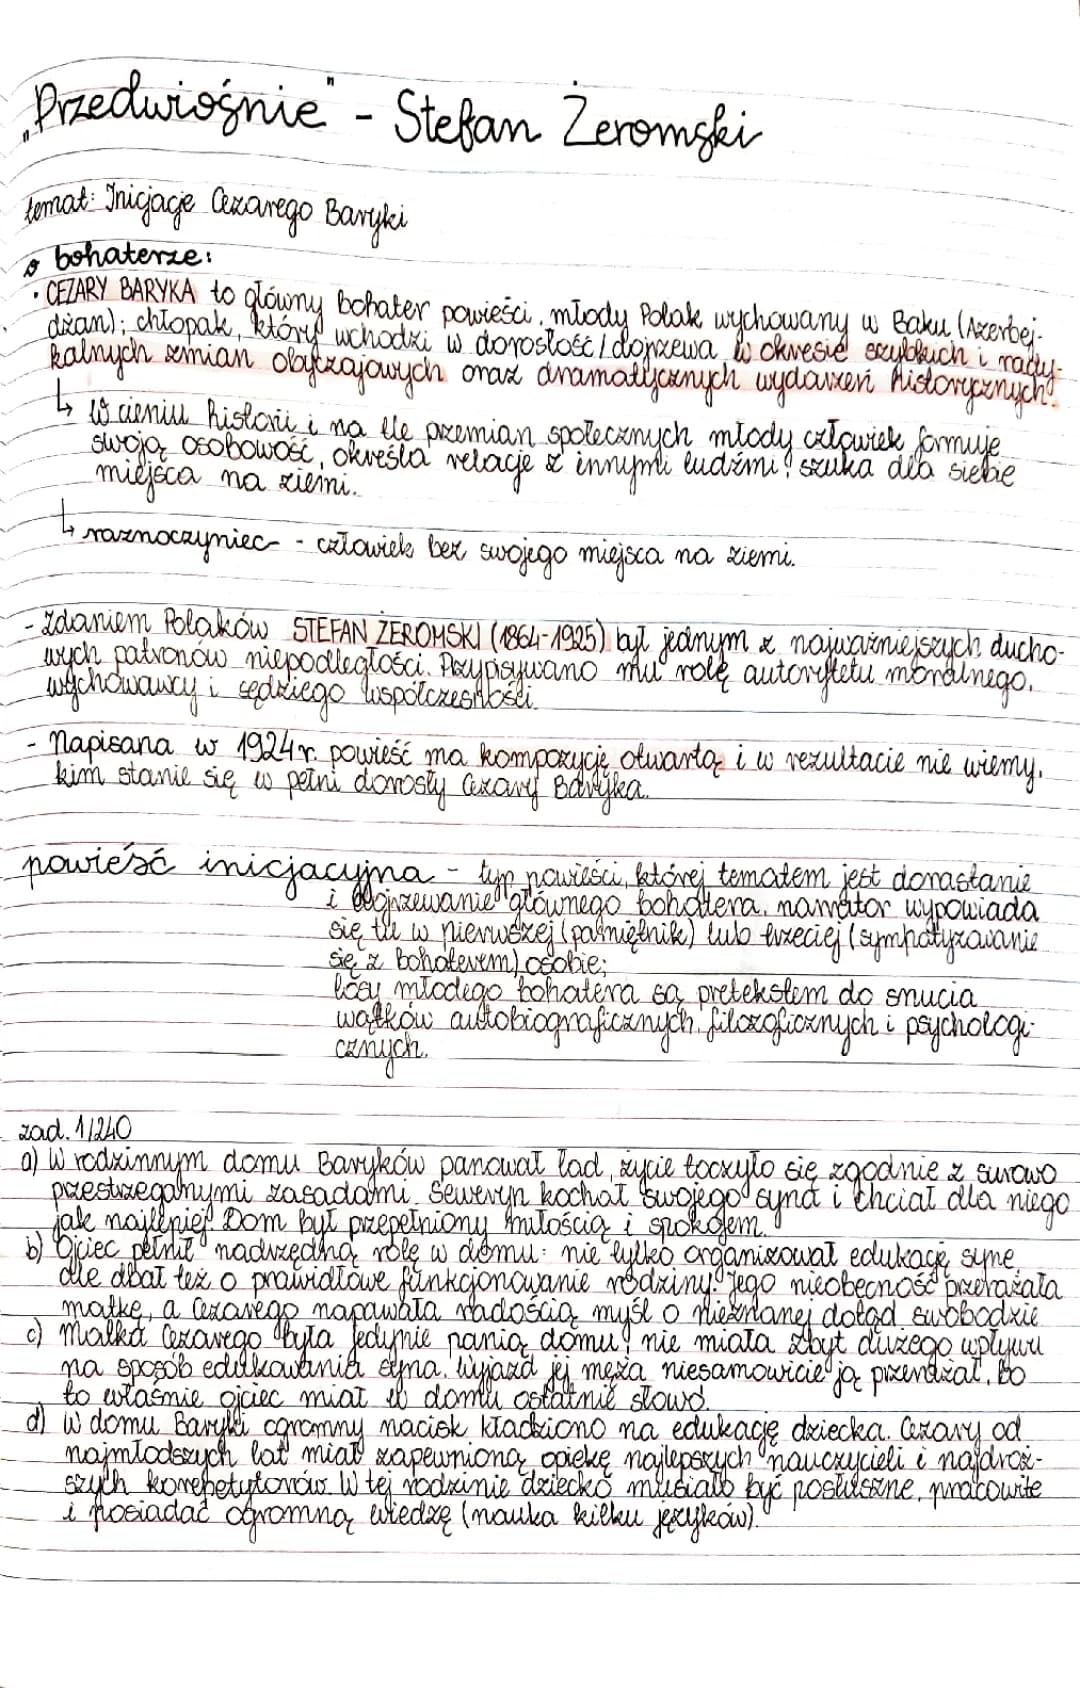 „Przedwiośnie" - Stefan Żeromski
temat: Inicjacje Cezarego Baryki
o bohaterze:
• CEZARY BARYKA to główny bohater powieści, młody Polak wychowany w Baku (Azerbej-
dżan); chłopak, który wchodzi w dorosłość/dojrzewa w okresie szybkich i rady-
kalnych zmian obyczajowych oraz dramatycznych wydarzeń historycznych.
↳ W cieniu historii i na tle przemian społecznych młody człowiek formuje
swoją osobowość, określa relacje z innymi ludźmi i szuka dla siebie
miejsca na ziemi.
↳ raznoczyniec - człowiek bez swojego miejsca na ziemi.
- Zdaniem Polaków STEFAN ŻEROMSKI (1864-1925) był jednym z najważniejszych ducho-
wych patronów niepodległości. Przypisywano mu rolę autorytetu moralnego,
wychowawcy i sędziego współczesności.
- Napisana w 1924 r. powieść ma kompozycję otwartą i w rezultacie nie wiemy,
kim stanie się w pełni dorosły Cezary Baryka.
powieść inicjacyjna - typ powieści, której tematem jest dorastanie
i dojrzewanie głównego bohatera. narrator wypowiada
się tu w pierwszej (pamiętnik) lub trzeciej (sympatyzowanie
się z bohaterem) osobie;
losy młodego bohatera są pretekstem do snucia
wątków autobiograficznych, filozoficznych i psychologi-
cznych.
zad. 1/240
a) W rodzinnym domu Baryków panował ład, życie toczyło się zgodnie z surowo
przestrzeganymi zasadami. Seweryn kochał swojego syna i chciał dla niego
jak najlepiej. Dom był przepełniony miłością i spokojem.
b) Ojciec pełnił nadrzędną rolę w domu: nie tylko organizował edukację syna,
ale dbał też o prawidłowe funkcjonowanie rodziny. Jego nieobecność przerażała
matkę, a Cezarego napawała radością myśl o nieznanej dotąd swobodzie.
c) Matka Cezarego była jedynie panią domu i nie miała zbyt dużego wpływu
na sposób edukowania syna. Wyjazd jej męża niesamowicie ją przerażał, bo
to właśnie ojciec miał w domu ostatnie słowo.
d) W domu Baryki ogromny nacisk kładziono na edukację dziecka. Cezary od
najmłodszych lat miał zapewnioną opiekę najlepszych nauczycieli i najdroż-
szych korepetytorów. W tej rodzinie dziecko musiało być posłuszne, pracowite
i posiadać ogromną wiedzę (nauka kilku języków).